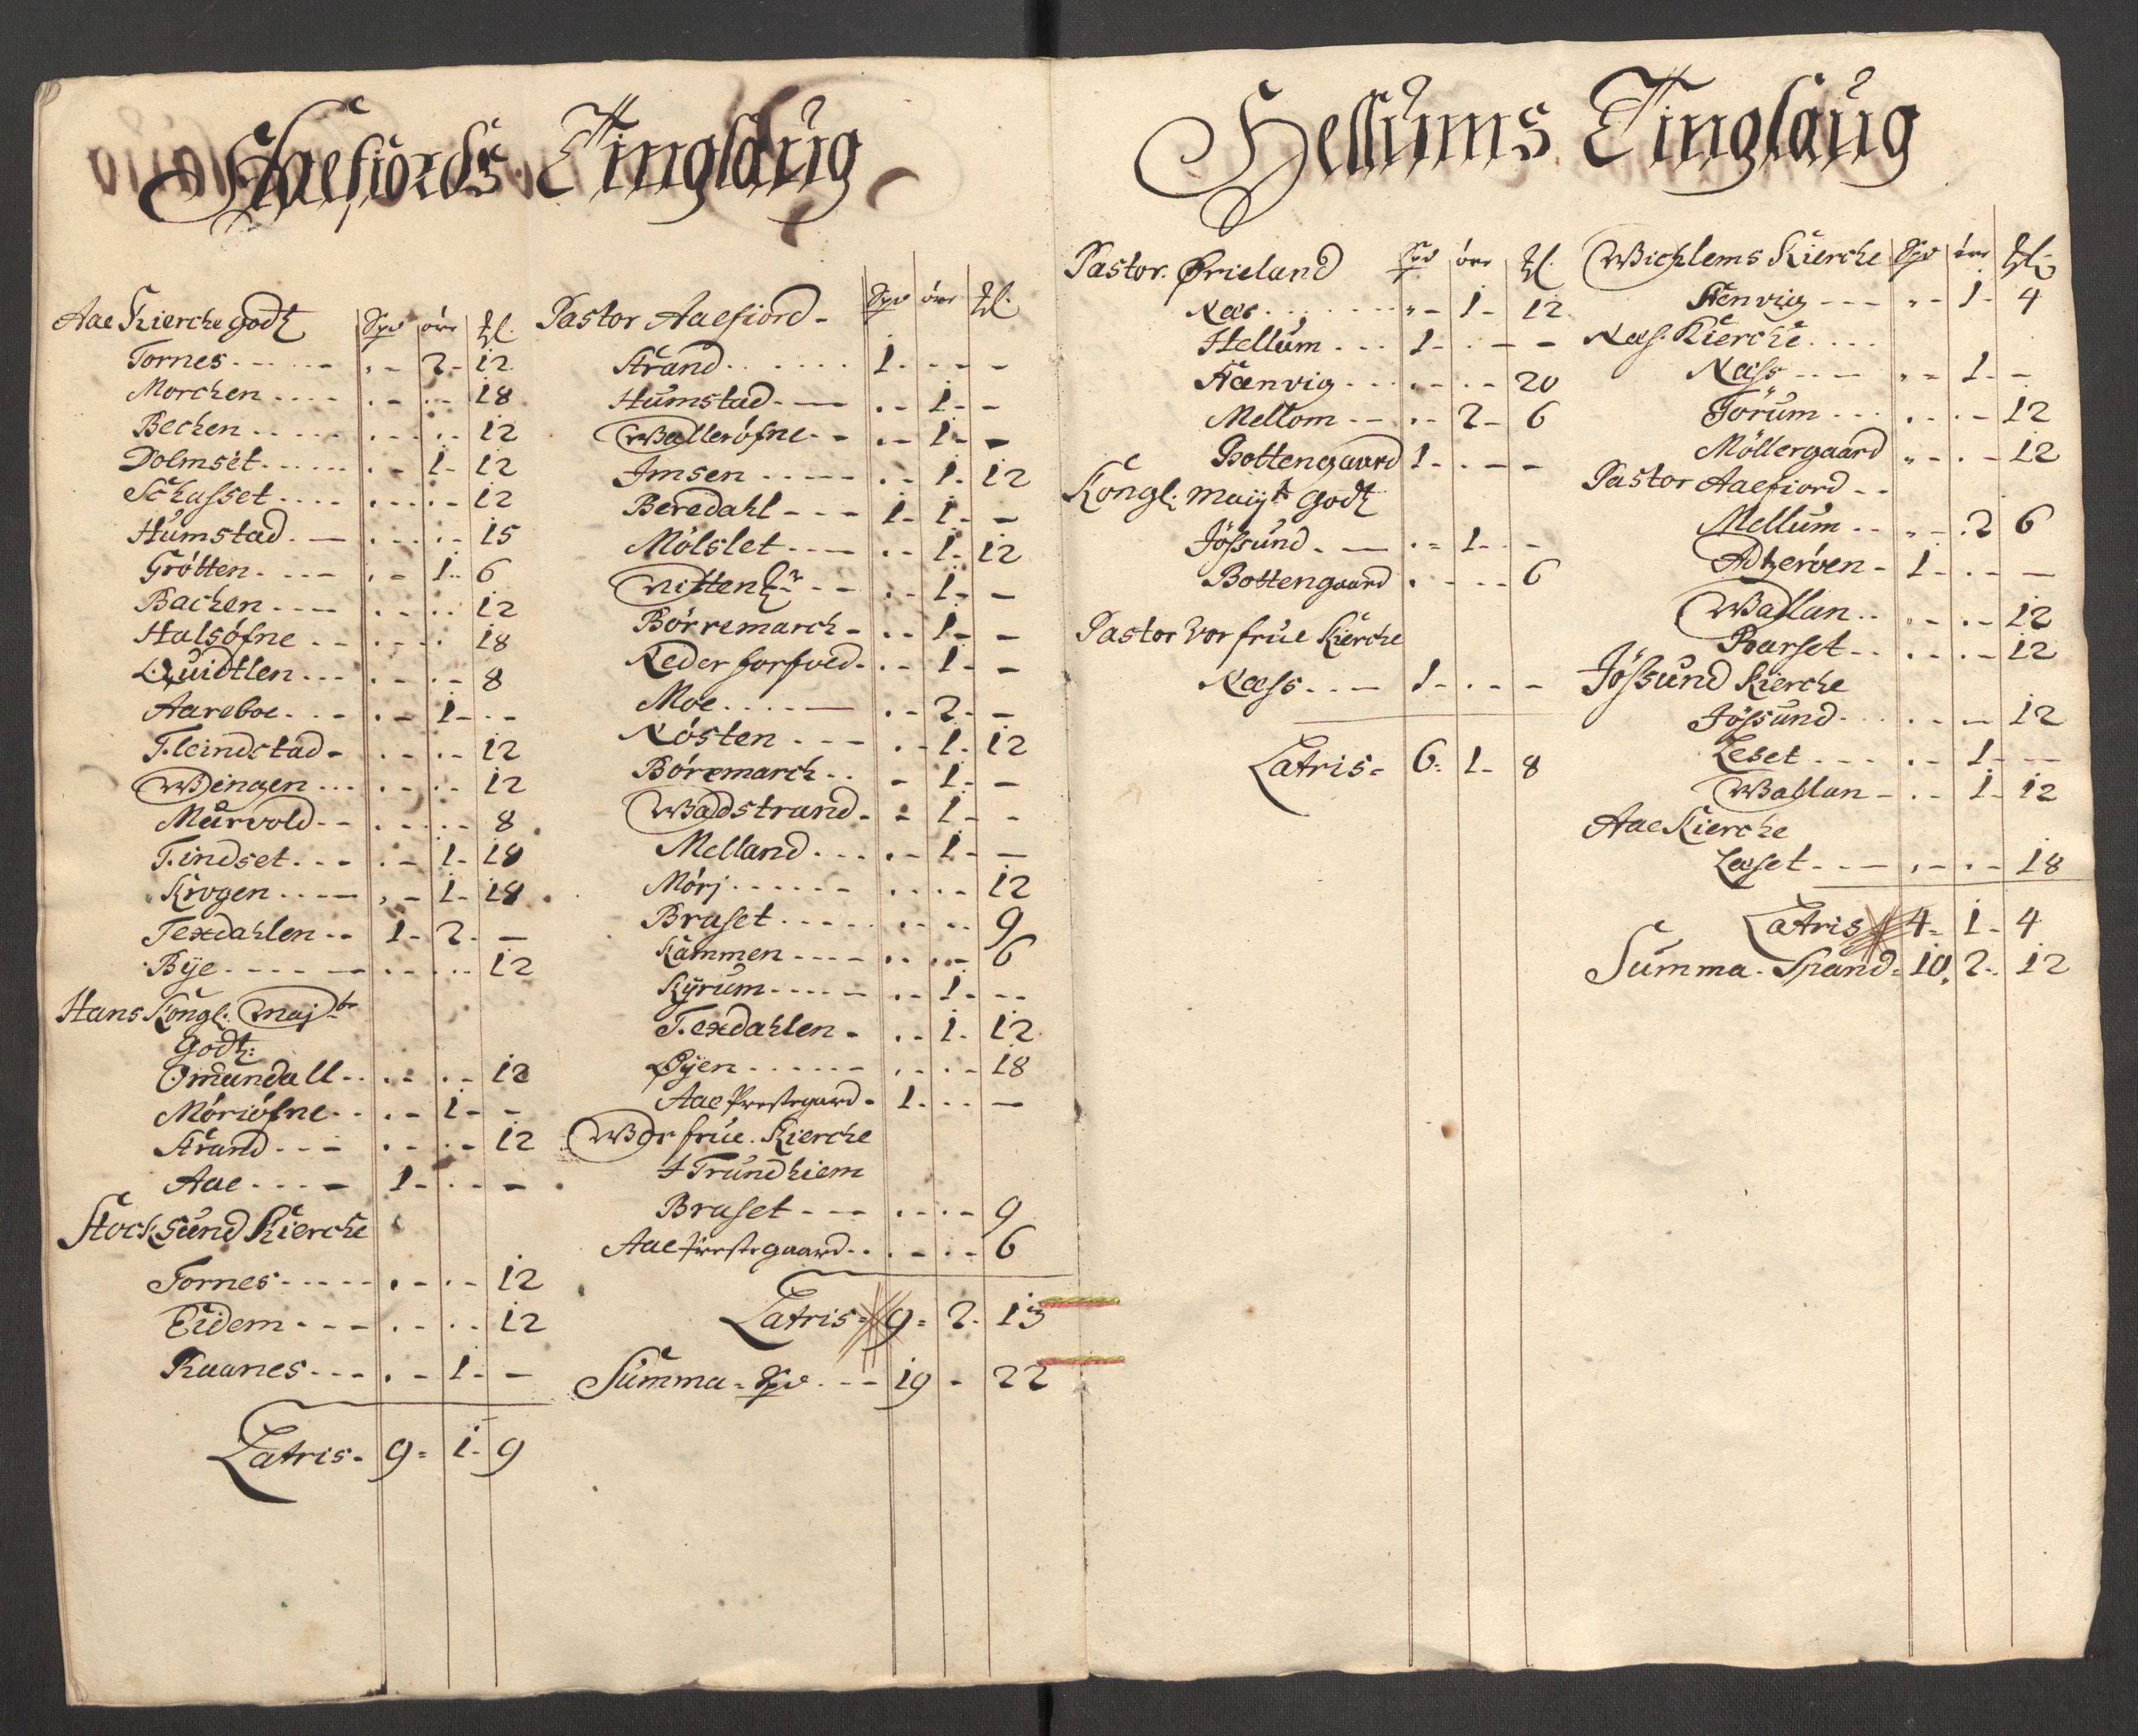 Aaefiords Tinglaug
Aae Kierche godtz Spd øre Mkl.
Tornes - - - 2 - 12
Morchen - - - 18
Bechen - - - 12
Dolmset - - 1 - 12
Schasset - - - 12
Humstad - - - 15
Grötten - - 1 - 6
Bachen - - - 12
Halsöfne - - - 18
Quidtlen - - - 8
Aareboe - - 1 - -
Fleindstad - - - 12
Wingen - - - 12
Murvold - - - 8
Findset - - 1 - 18
Krogen - - 1 - 18
Texdahlen - 1 - 2 - -
Bye - - - 12
Hans Kongl. Majts
Godtz:
Omundall - - - 12
Möriöfne - - 1 - -
Strand - - - 12
Aae - 1 - - -
Stocksund Kierche
Tornes - - - 12
Eidem - - - 12
Raanes - - 1 - -
Latris - 9 - 1 - 9
Pastor Aaefiord - Spd øre Mkl.
Strand - 1 - - -
Humstad - - 1 - -
Walleröfne - - 1 - -
Imsen - - 1 - 12
Beredahl - 1 - 1 - -
Mölslet - - 1 - 12
Nitten - - 1 - -
Börremarch - - 1 - -
Neder forfved - - 1 - -
Moe - - 2 - -
Nösten - - 1 - 12
Böremarch - - 1 - -
Wadstrand - - 1 - -
Melland - - 1 - -
Mörj - - - 12
Bruset - - - 9
Kammen - - - 6
Kyrum - - 1 - -
Texdahlen - - 1 - 12
Øyen - - - 18
Aae Prestegaard - 1 - - -
Wor frue Kierche
i Trundhiem
Bruset - - - 9
Aae Prestegaard - - - 6
Latris - 9 - 2 - 13
Summa - Spd - 19 - 22
Hellums Tinglaug
Pastor Ørieland Spd øre Mkl.
Næs - - 1 - 12
Hellum - 1 - - -
Stenvig - - - 20
Mellom - - 2 - 6
Bottengaard 1 - - -
Kongl: Mayts Godtz
Jössund - - 1 - -
Bottengaard - - - 6
Pastor Vor frue Kierche
Næss - 1 - - -
Latris - 6 - 1 - 8
Wichlems Kierche Spd øre Mkl:
Stenvig - - 1 - 4
Næss Kierche
Næss - - 1 - -
Torum - - - 12
Möllergaard - - - 12
Pastor Aaefiord - -
Mellum - - 2 6
Adtzeröen - 1 - - -
Wallan - - - 12
Barset - - - 12
Jössund Kierche
Jössund - - - 12
Leset - - 1 - -
Wallan - - 1 - 12
Aae Kierche
Læset - - - 18
Latris 4 - 1 - 4
Summa - Spand - 10 - 2 - 12